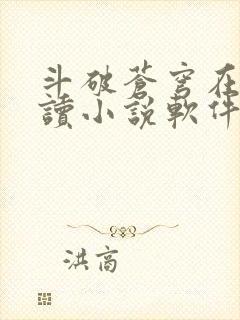 斗破蒼穹在
讀小説軟件
洪商